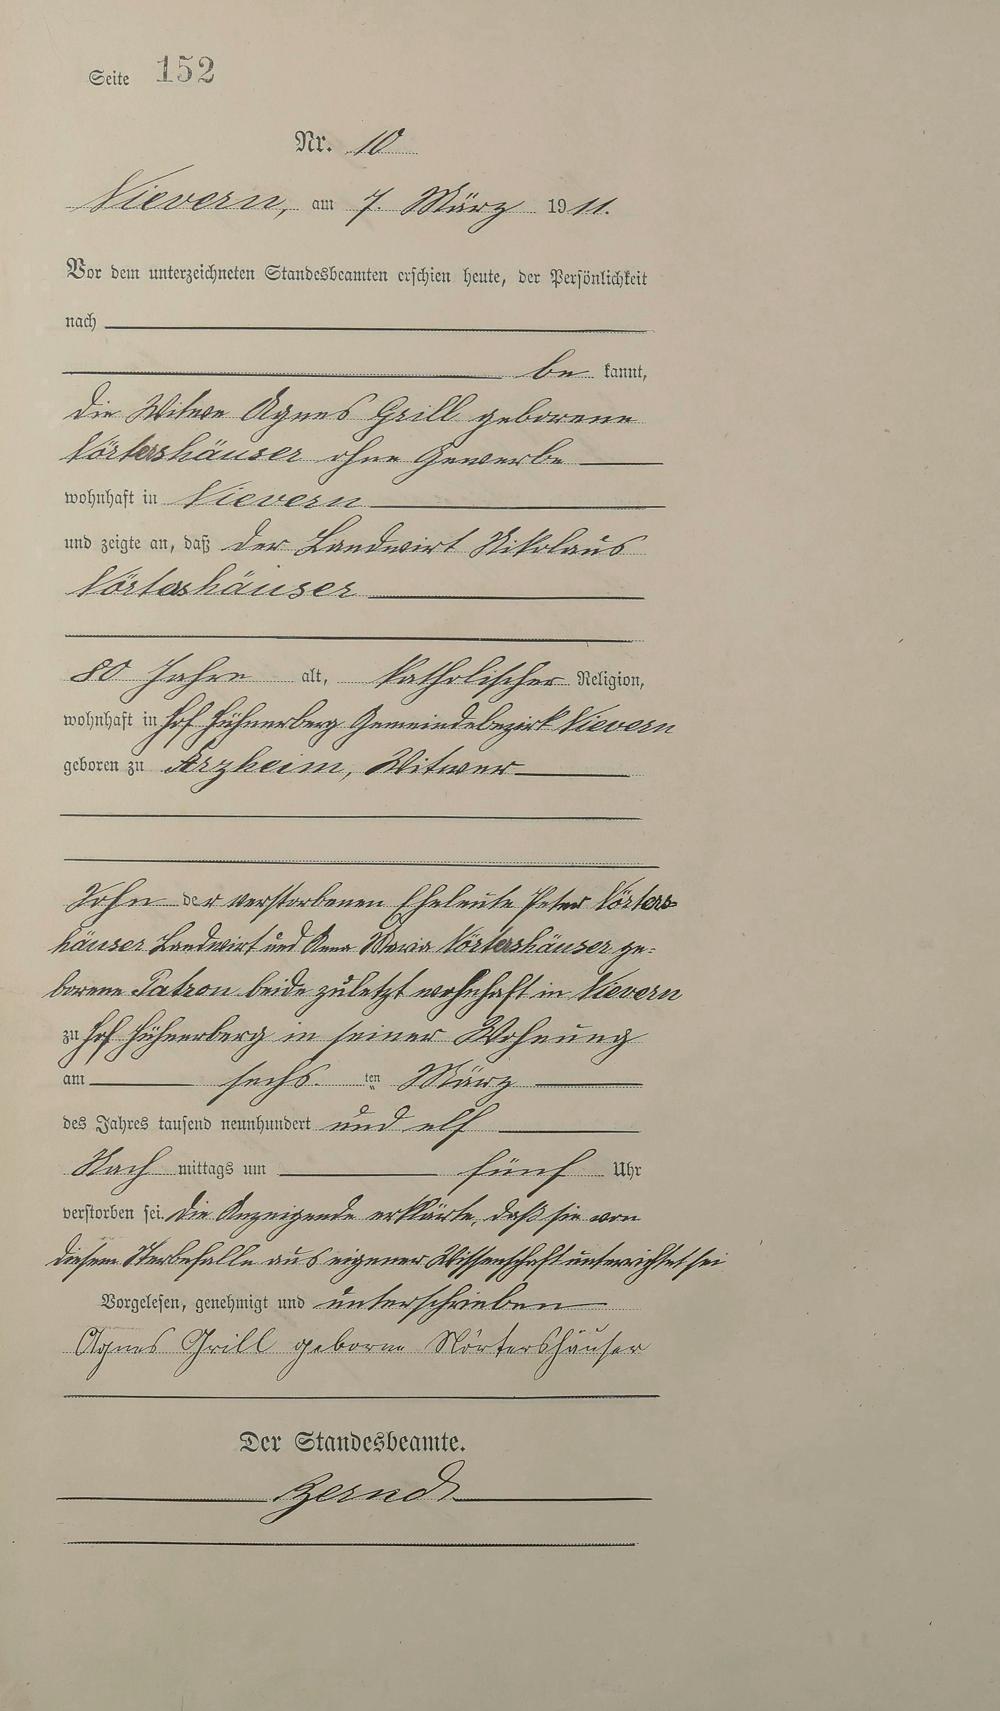 Seite 152
Nr. 10
Nievern, am 7. März 1911.
Vor dem unterzeichneten Standesbeamten erschien heute, der Persönlichkeit
nach
be kannt,
die Witwe Agnes Grill geborene
Nörtershäuser ohne Gewerbe
wohnhaft in Nievern
und zeigte an, daß der Landwirt Nikolaus
Nörtershäuser
80 Jahre alt, katholischer Religion,
wohnhaft in Hof Hühnerberg Gemeindebezirk Nievern
geboren zu Arzheim, Witwer
Sohn der verstorbenen Eheleute Peter Nörters-
häuser Landwirt und Anna Maria Nörtershäuser ge-
borene Patron beide zuletzt wohnhaft in Nievern
zu Hof Hühnerberg in seiner Wohnung
am sechs ten März
des Jahres tausend neunhundert und elf
Nach mittags um fünf Uhr
verstorben sei. Die Anzeigende erklärte, daß sie von
diesem Sterbefalle aus eigener Wissenschaft unterrichtet sei
Vorgelesen, genehmigt und unterschrieben
Agnes Grill geborne Nörtershäuser
Der Standesbeamte.
Zerndt